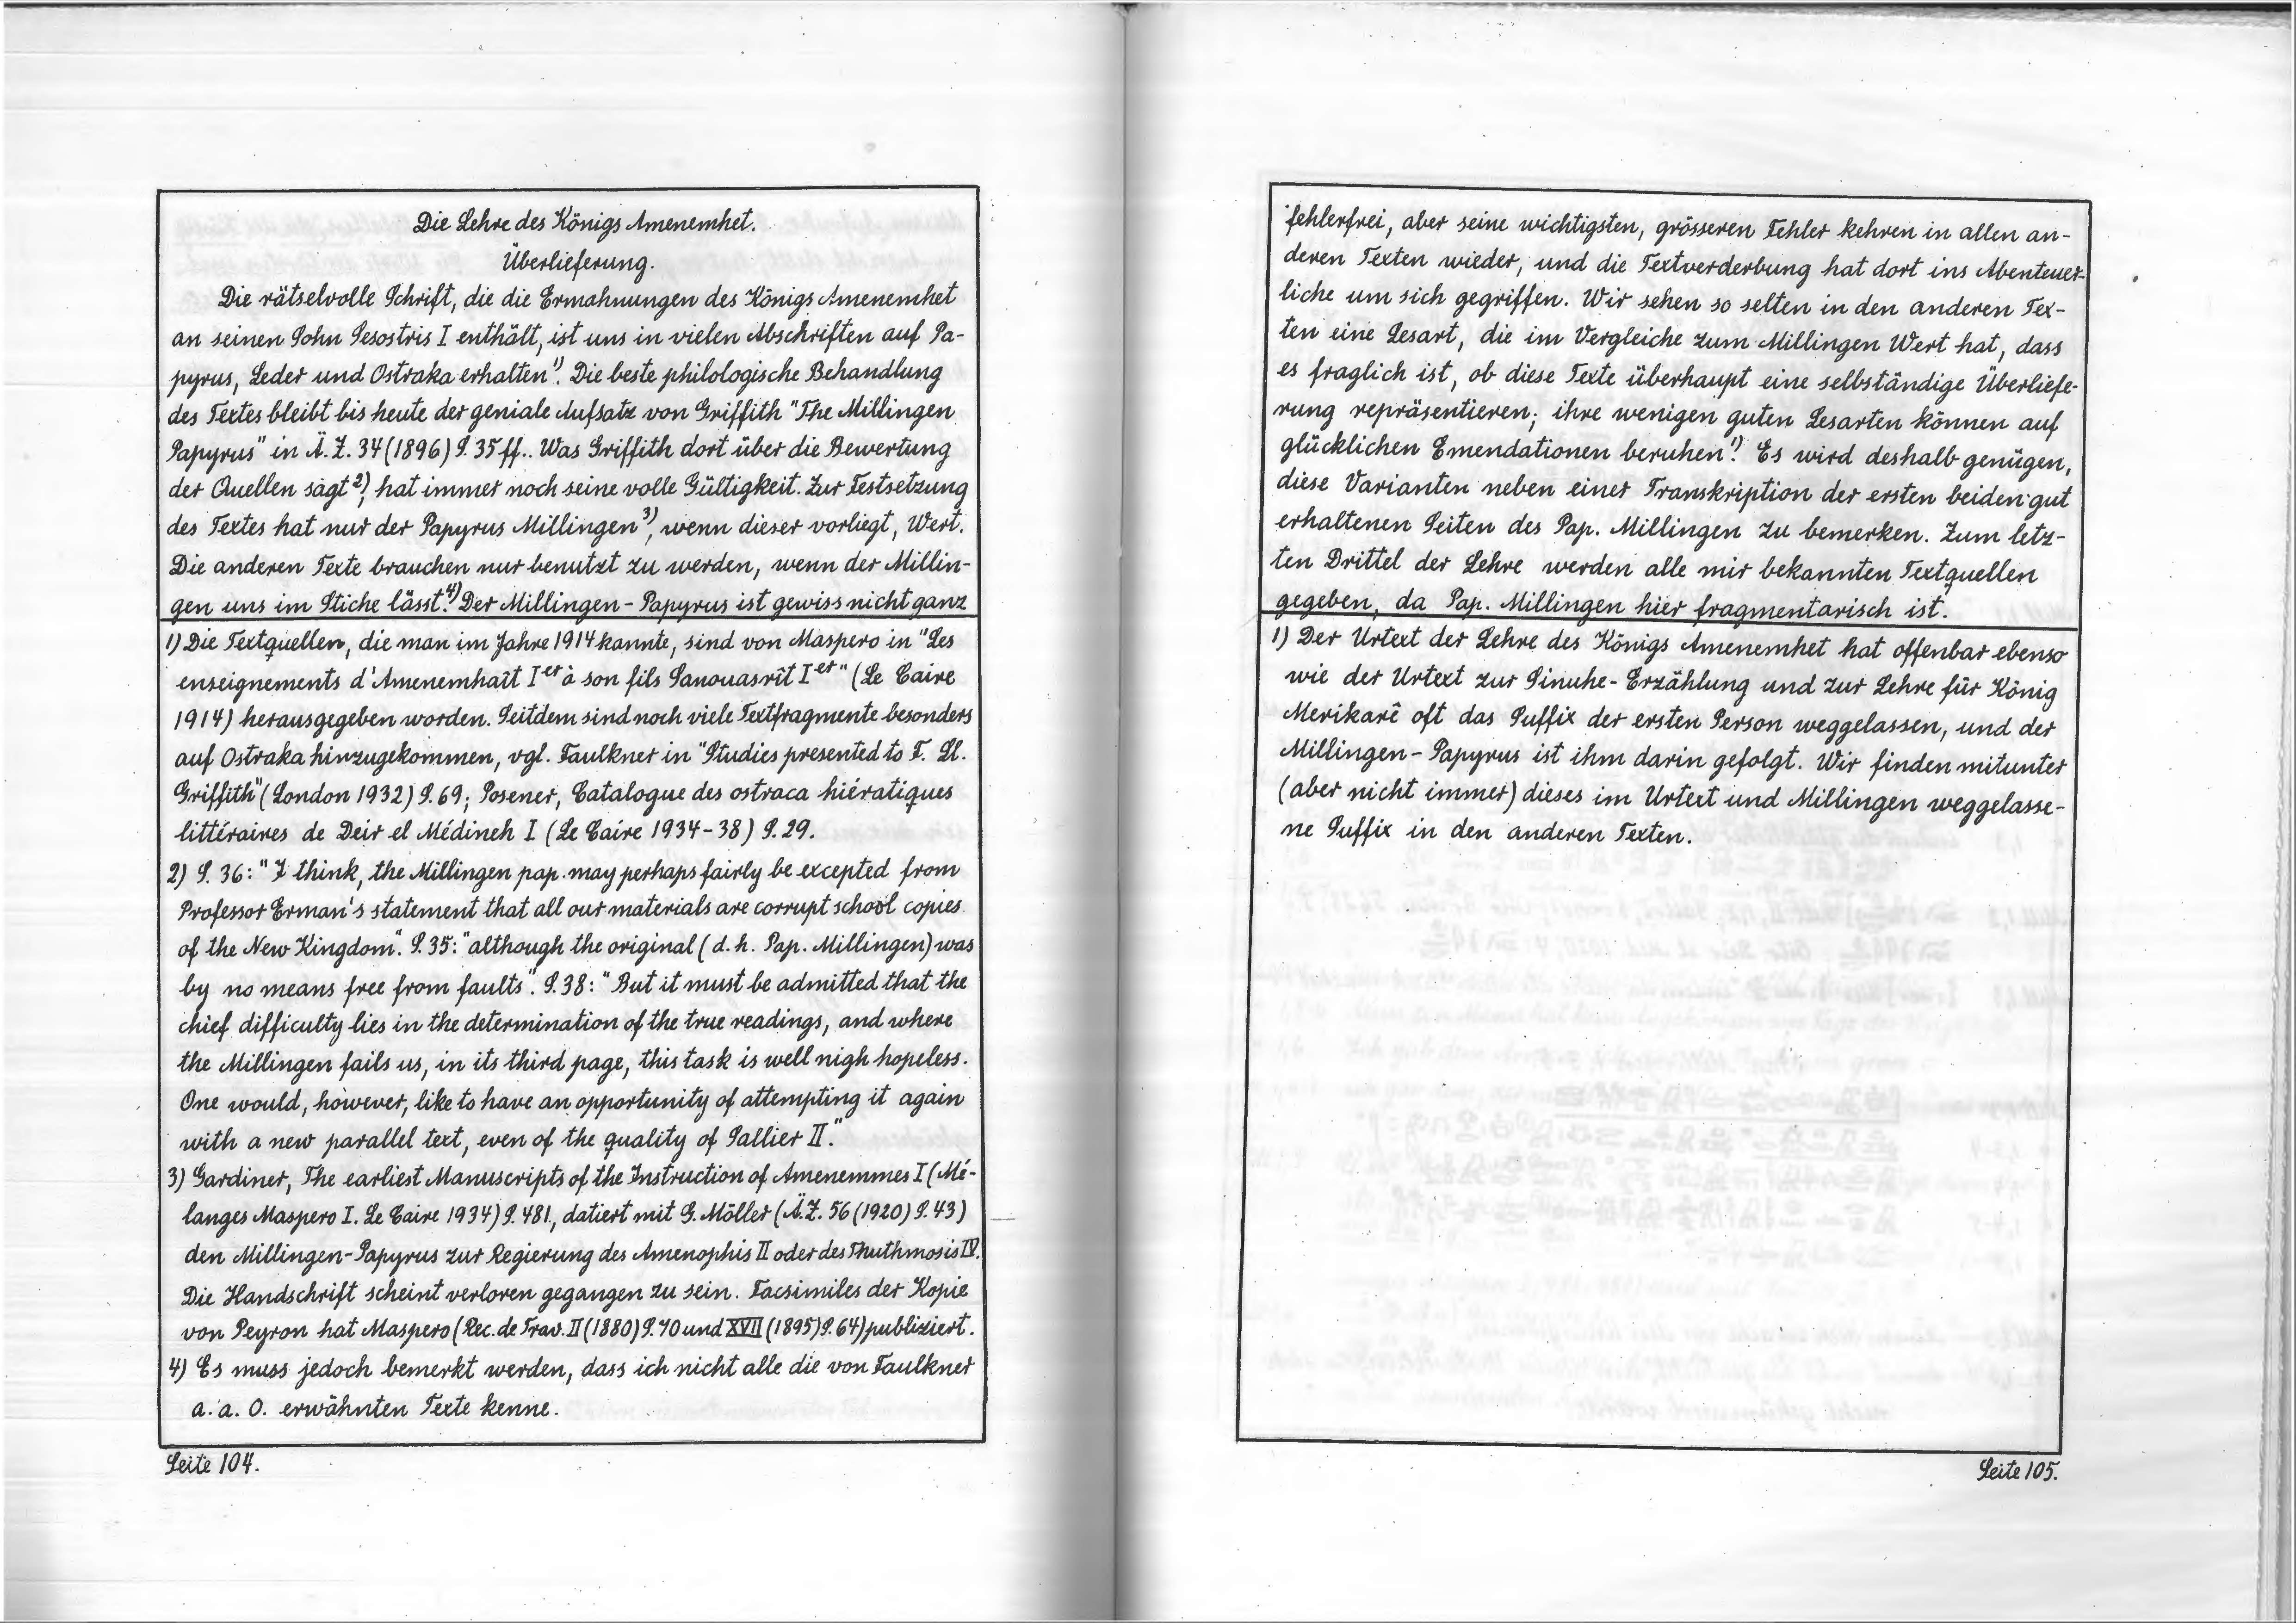 Die Lehre des Königs Amenemhet.
Überlieferung.
Die rätselvolle Schrift, die die Ermahnungen des Königs Amenemhet
an seinen Sohn Sesostris I enthält, ist uns in vielen Abschriften auf Pa-
pyrus, Leder und Ostraka erhalten¹⁾. Die beste philologische Behandlung
des Textes bleibt bis heute der geniale Aufsatz von Griffith "The Millingen
Papyrus" in Ä.Z. 34 (1896) S. 35 ff.. Was Griffith dort über die Bewertung
der Quellen sagt²⁾, hat immer noch seine volle Gültigkeit. Zur Festsetzung
des Textes hat nur der Papyrus Millingen³⁾, wenn dieser vorliegt, Wert.
Die anderen Texte brauchen nur benutzt zu werden, wenn der Millin-
gen uns im Stiche lässt.⁴⁾ Der Millingen-Papyrus ist gewiss nicht ganz
1) Die Textquellen, die man im Jahre 1914 kannte, sind von Maspero in "Les
enseignements d'Amenemhaît Iᵉʳ à son fils Sanouasrît Iᵉʳ" (Le Caire
1914) herausgegeben worden. Seitdem sind noch viele Textfragmente besonders
auf Ostraka hinzugekommen, vgl. Faulkner in "Studies presented to F. Ll.
Griffith" (London 1932) S. 69; Posener, Catalogue des ostraca hiératiques
littéraires de Deir el Médineh I (Le Caire 1934-38) S. 29.
2) S. 36: "I think, the Millingen pap. may perhaps fairly be excepted from
Professor Erman's statement that all our materials are corrupt school copies
of the New Kingdom". S. 35: "although the original (d.h. Pap. Millingen) was
by no means free from faults". S. 38: "But it must be admitted that the
chief difficulty lies in the determination of the true readings, and where
the Millingen fails us, in its third page, this task is well nigh hopeless.
One would, however, like to have an opportunity of attempting it again
with a new parallel text, even of the quality of Sallier II."
3) Gardiner, The earliest Manuscripts of the Instruction of Amenemmes I (Mé-
langes Maspero I. Le Caire 1934) S. 481, datiert mit G. Möller (Ä.Z. 56 (1920) S. 43)
den Millingen-Papyrus zur Regierung des Amenophis II oder des Thuthmosis IV.
Die Handschrift scheint verloren gegangen zu sein. Facsimiles der Kopie
von Peyron hat Maspero (Rec. de Trav. II (1880) S. 70 und XVII (1895) S. 64) publiziert.
4) Es muss jedoch bemerkt werden, dass ich nicht alle die von Faulkner
a. a. O. erwähnten Texte kenne.
Seite 104.
fehlerfrei, aber seine wichtigsten, grösseren Fehler kehren in allen an-
deren Texten wieder, und die Textverderbung hat dort ins Abenteuer-
liche um sich gegriffen. Wir sehen so selten in den anderen Tex-
ten eine Lesart, die im Vergleiche zum Millingen Wert hat, dass
es fraglich ist, ob diese Texte überhaupt eine selbständige Überliefe-
rung repräsentieren; ihre wenigen guten Lesarten können auf
glücklichen Emendationen beruhen¹⁾. Es wird deshalb genügen,
diese Varianten neben einer Transkription der ersten beiden gut
erhaltenen Seiten des Pap. Millingen zu bemerken. Zum letz-
ten Drittel der Lehre werden alle mir bekannten Textquellen
gegeben, da Pap. Millingen hier fragmentarisch ist.
1) Der Urtext der Lehre des Königs Amenemhet hat offenbar ebenso
wie der Urtext zur Sinuhe-Erzählung und zur Lehre für König
Merikarê oft das Suffix der ersten Person weggelassen, und der
Millingen-Papyrus ist ihm darin gefolgt. Wir finden mitunter
(aber nicht immer) dieses im Urtext und Millingen weggelasse-
ne Suffix in den anderen Texten.
Seite 105.